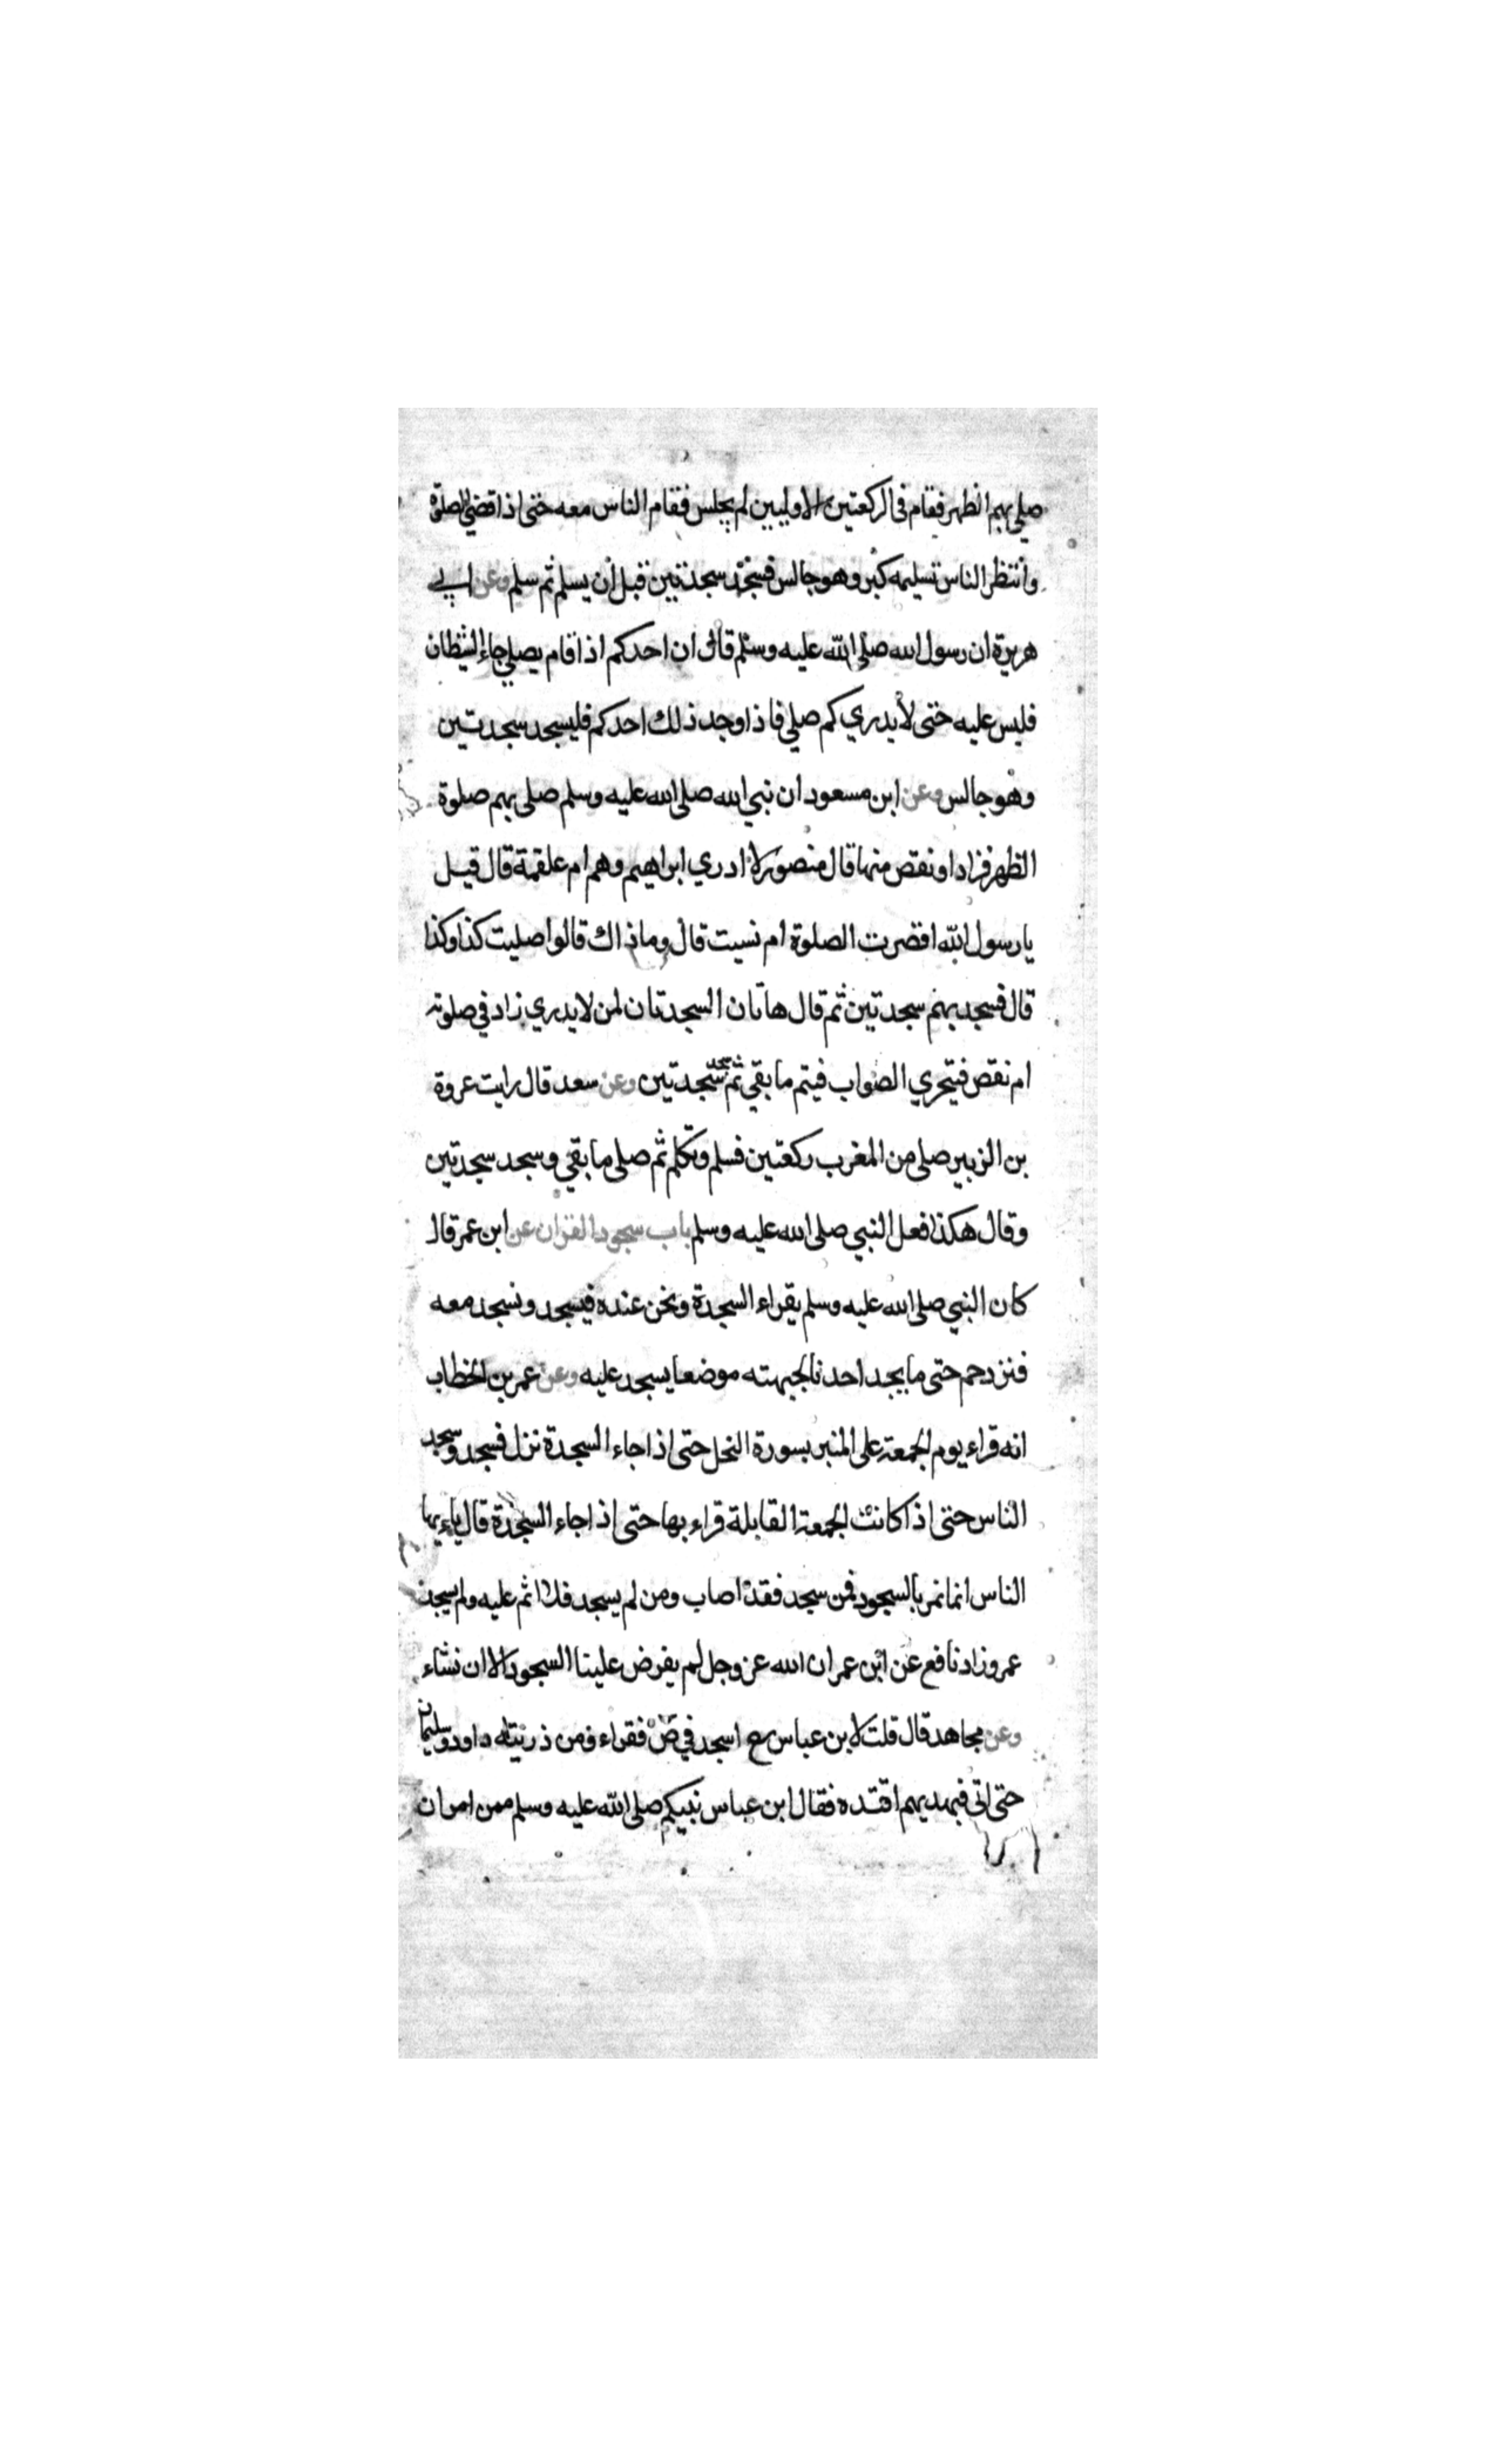 صلى بهم الظهر فقام فى الركعتين الاوليين لم يجلس فقام الناس معه حتى اذا قضى الصلوة
وانتظر الناس تسليمه كبر وهو جالس فسجد سجدتين قبل ان يسلم ثم سلم وعن ابي
هريرة ان رسول الله صلى الله عليه وسلم قال ان احدكم اذا قام يصلي جاء الشيطان
فلبس عليه حتى لا يدري كم صلي فاذا وجد ذلك احدكم فليسجد سجدتين
وهو جالس وعن ابن مسعود ان نبي الله صلى الله عليه وسلم صلى بهم صلوة
الظهر فزاد او نقص منها قال منصور لا ادري ابراهيم وهم ام علقمة قال قيل
يا رسول الله اقصرت الصلوة ام نسيت قال وما ذاك قالوا صليت كذا وكذا
قال فسجد بهم سجدتين ثم قال هاتان السجدتان لمن لا يدري زاد في صلوته
ام نقص فيتحري الصواب فيتم ما بقي ثم يسجد سجدتين وعن سعد قال رايت عروة
بن الزبير صلى من المغرب ركعتين فسلم وتكلم ثم صلى ما بقي وسجد سجدتين
وقال هكذا فعل النبي صلى الله عليه وسلم باب سجود القران عن ابن عمر قال
كان النبي صلى الله عليه وسلم يقراء السجدة ونحن عنده فيسجد ونسجد معه
فنزدحم حتى ما يجد احدنا لجبهته موضعا يسجد عليه وعن عمر بن الخطاب
انه قراء يوم الجمعة على المنبر بسورة النحل حتى اذا جاء السجدة نزل فسجد وسجد
الناس حتى اذا كانت الجمعة القابلة قراء بها حتى اذا جاء السجدة قال ياءيها
الناس انما نمر بالسجود فمن سجد فقد اصاب ومن لم يسجد فلا اثم عليه ولم يسجد
عمر وزاد نافع عن ابن عمر ان الله عز وجل لم يفرض علينا السجود الا ان نشاء
وعن مجاهد قال قلت لابن عباس رضي اسجد في ص فقراء ومن ذريته داود وسليمان
حتى اتى فبهديهم اقتده فقال ابن عباس نبيكم صلى الله عليه وسلم ممن امر ان